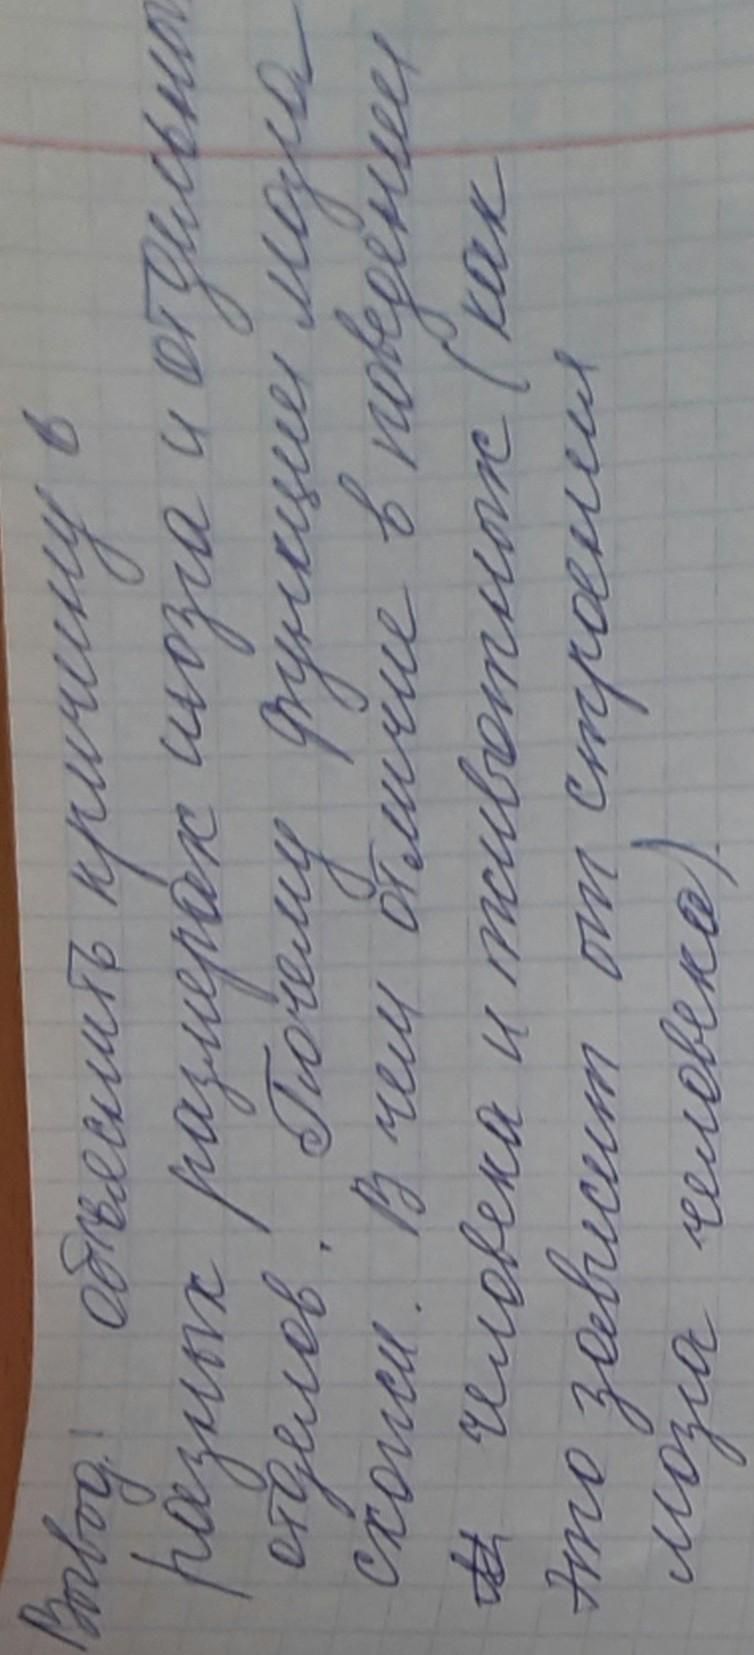 Вывод: объяснить причину в
разных размерах мозга и отдельных
отделов. Почему функции мозга
схожи. В чем отличие в поведении
человека и животных (как
это зависит от строения
мозга человека)